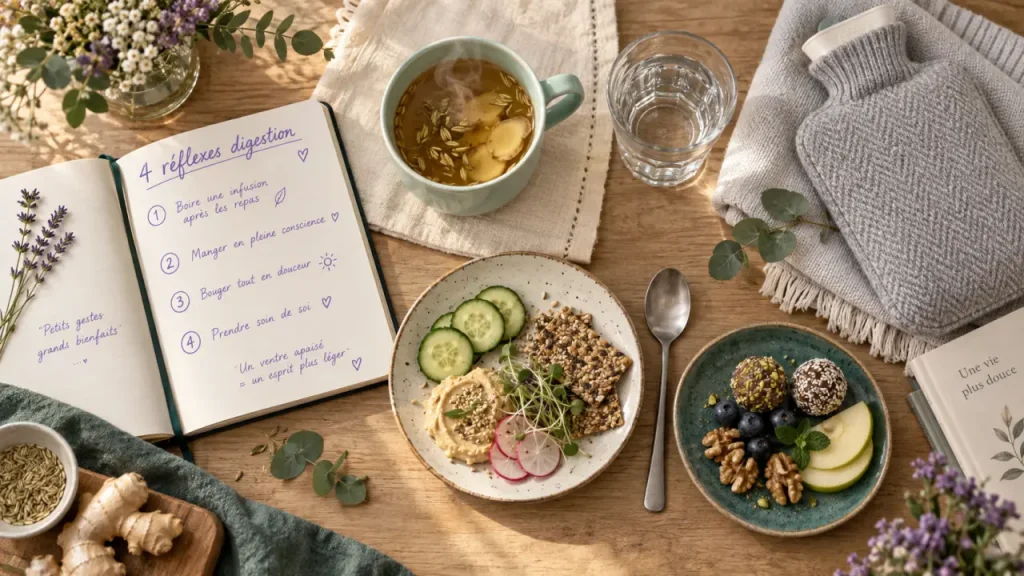 4 réflexes digestion
1 Boire une infusion
après les repas
2 Manger en pleine conscience
3 Bouger tout en douceur
4 Prendre soin de soi
"Un ventre apaisé
= un esprit plus léger"
"Petits gestes
grands bienfaits"
Une vie
plus douce